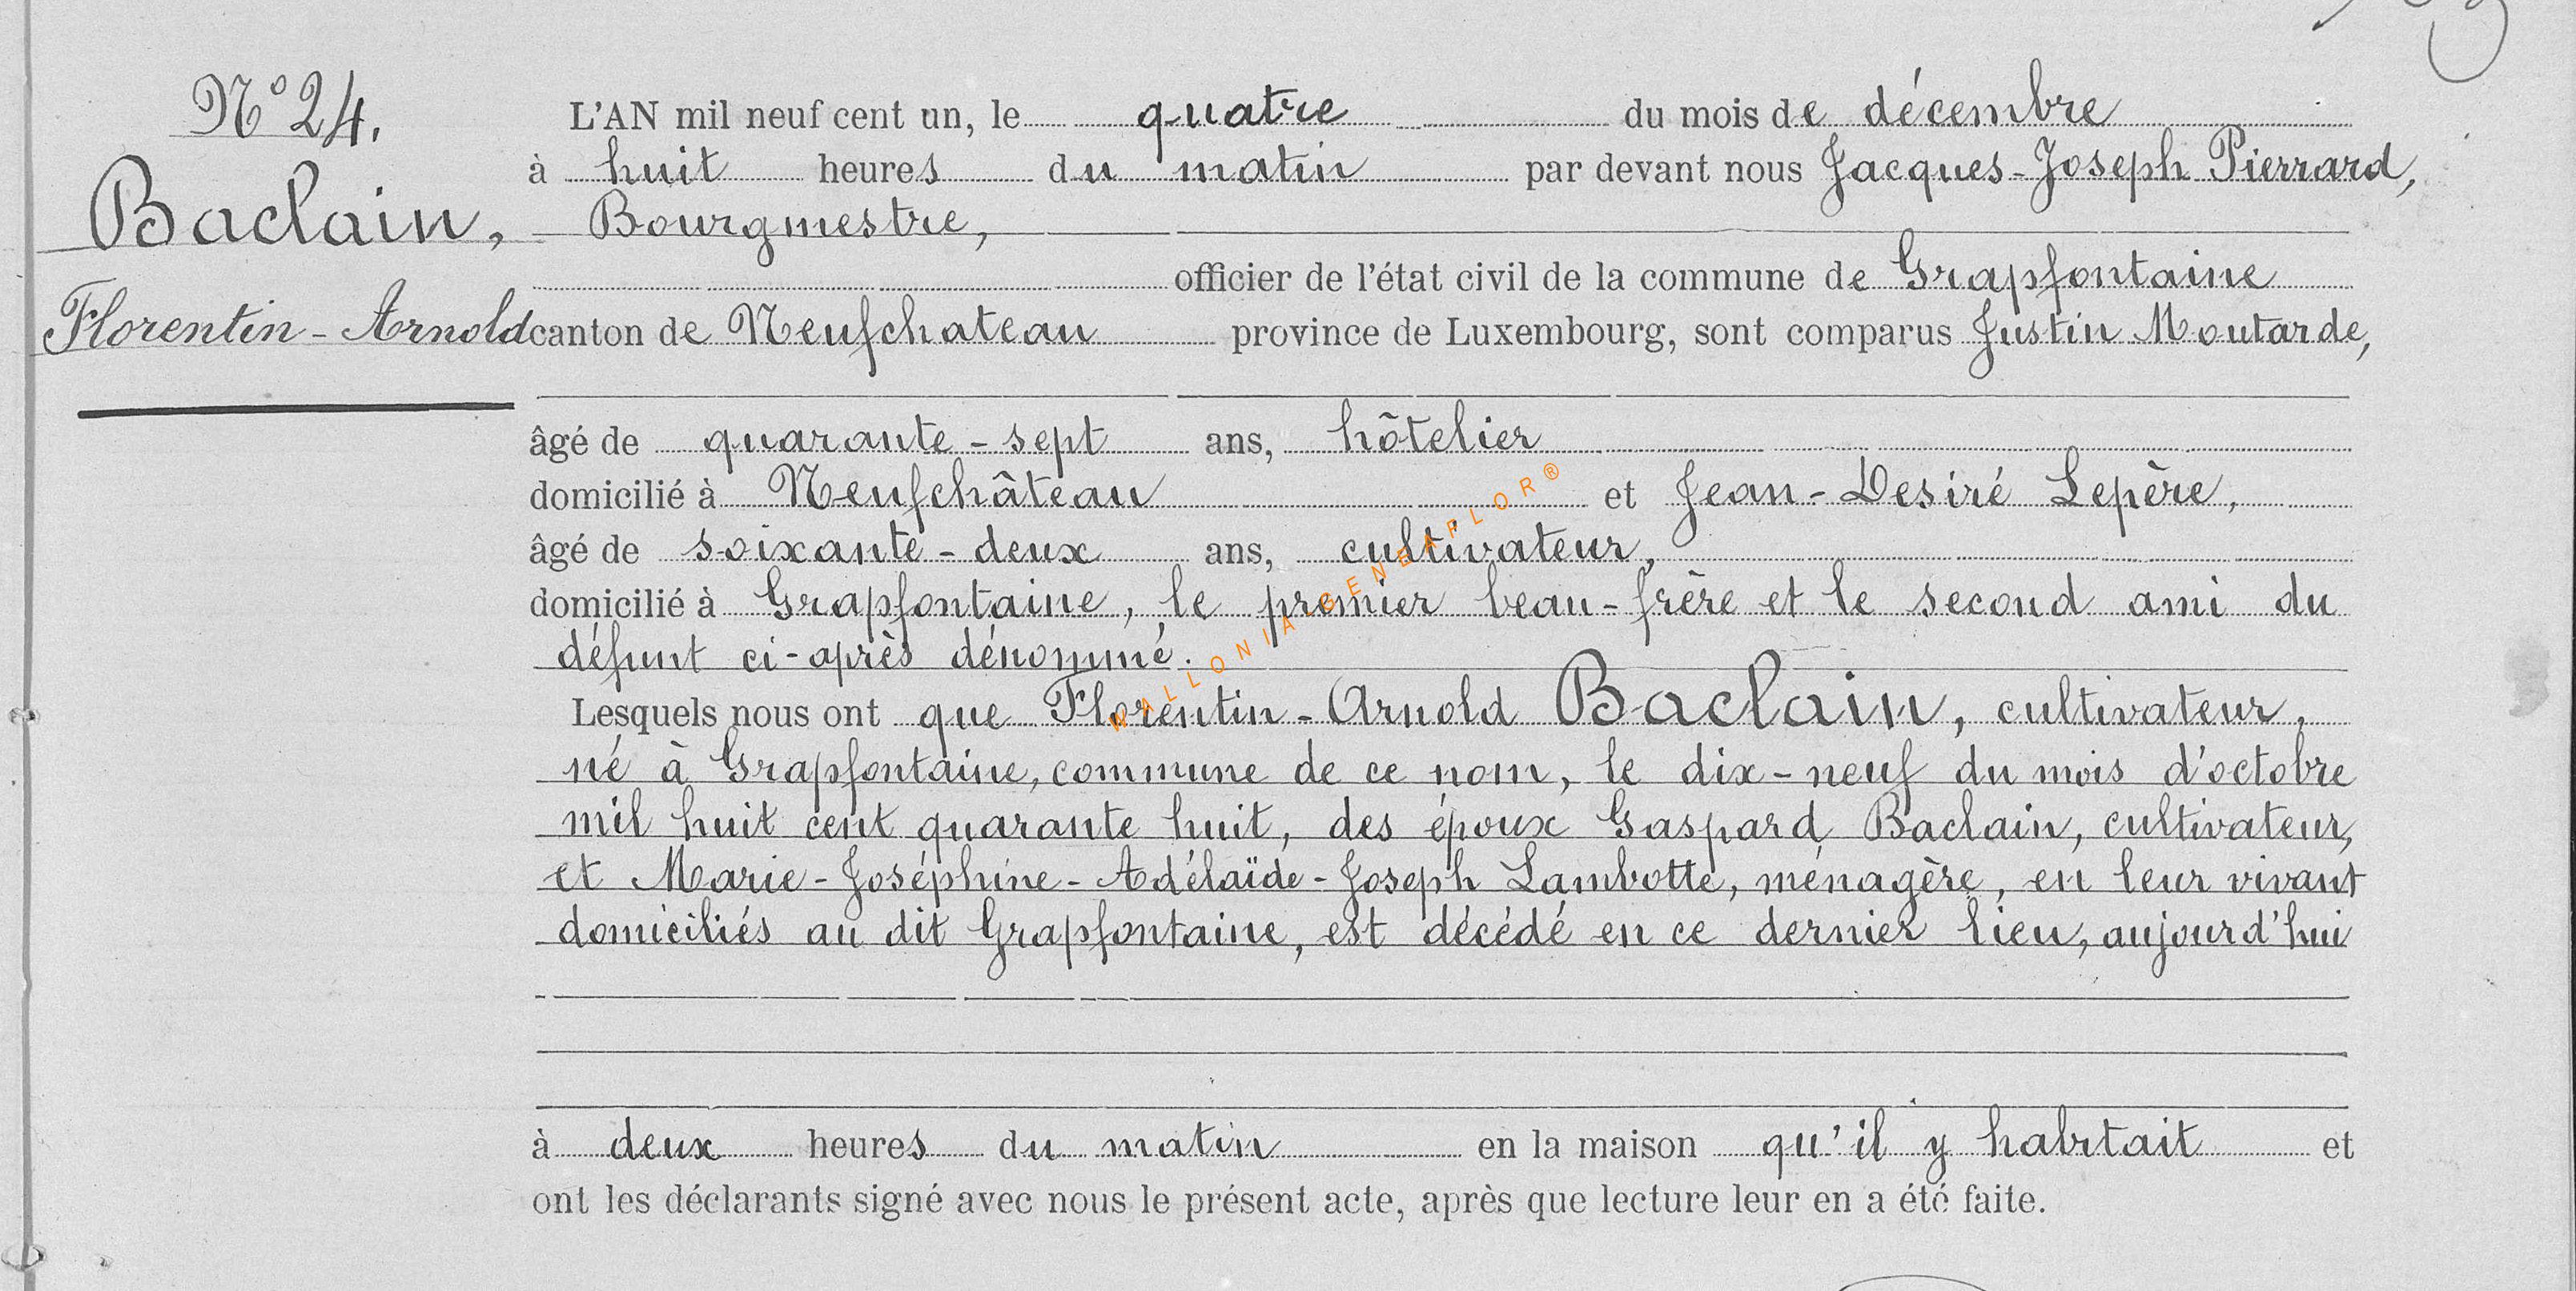 N° 24.
Baclain,
Florentin - Arnold
L'AN mil neuf cent un, le quatre du mois de décembre
à huit heures du matin par devant nous Jacques-Joseph Pierrard,
Bourgmestre,
officier de l'état civil de la commune de Grapfontaine
canton de Neufchateau province de Luxembourg, sont comparus Justin Moutarde,
âgé de quarante-sept ans, hôtelier
domicilié à Neufchâteau et Jean-Desiré Lepère,
âgé de soixante-deux ans, cultivateur,
domicilié à Grapfontaine, le premier beau-frère et le second ami du
défunt ci-après dénommé.
Lesquels nous ont que Florentin-Arnold Baclain, cultivateur,
né à Grapfontaine, commune de ce nom, le dix-neuf du mois d'octobre
mil huit cent quarante huit, des époux Gaspard Baclain, cultivateur,
et Marie-Joséphine-Adélaïde-Joseph Lambotte, ménagère, en leur vivant
domiciliés au dit Grapfontaine, est décédé en ce dernier lieu, aujourd'hui
à deux heures du matin en la maison qu'il y habitait et
ont les déclarants signé avec nous le présent acte, après que lecture leur en a été faite.